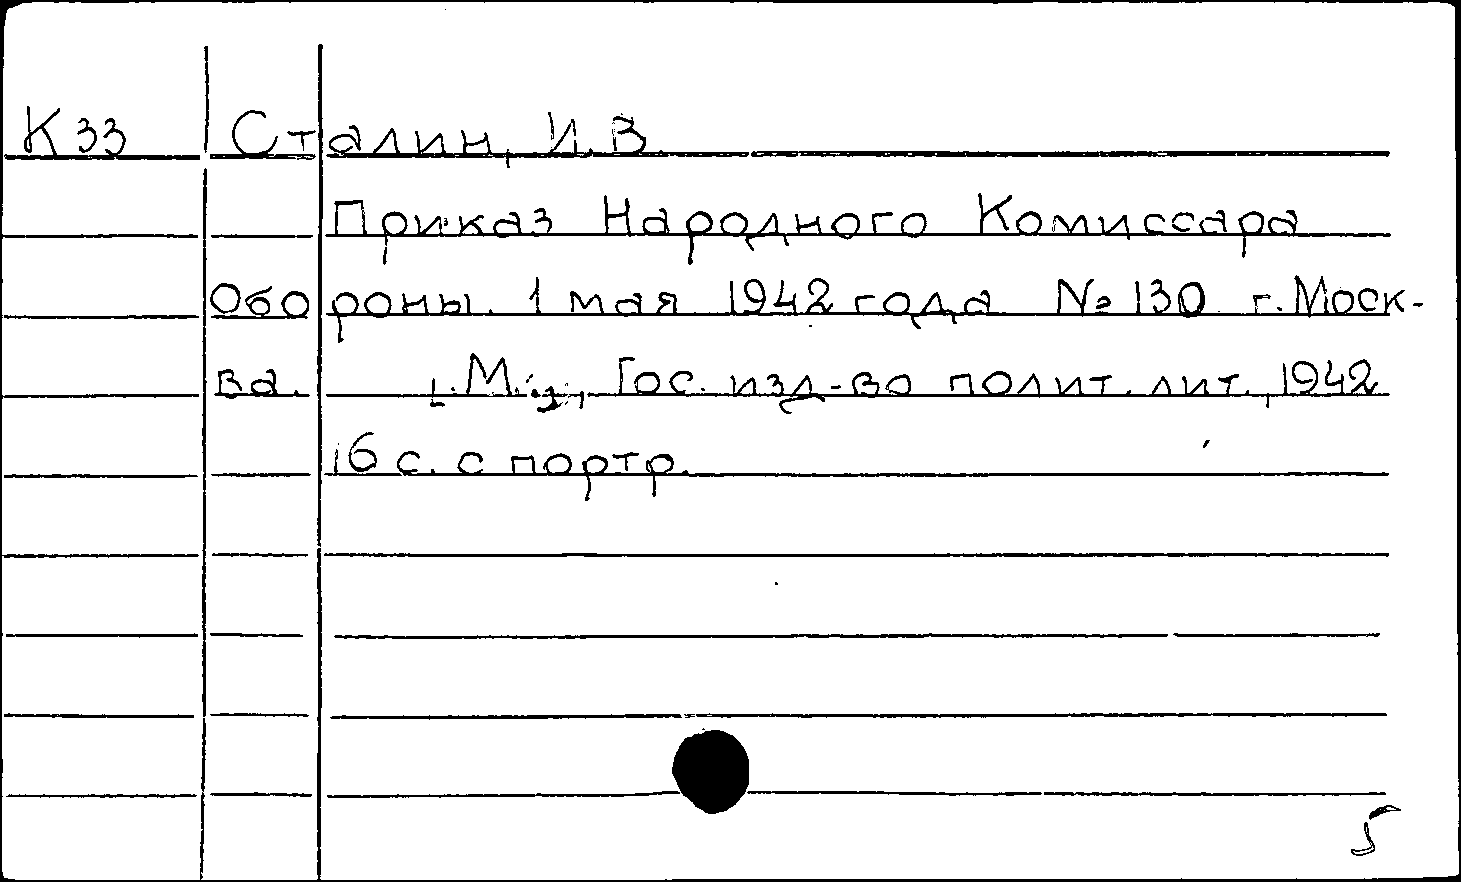 К33 Сталин, И.В.
Приказ Народного Комиссара
Обороны. 1 мая 1942 года № 130 г. Моск-
ва. [М.], Гос. изд-во полит. лит., 1942
16 с. с портр.
5